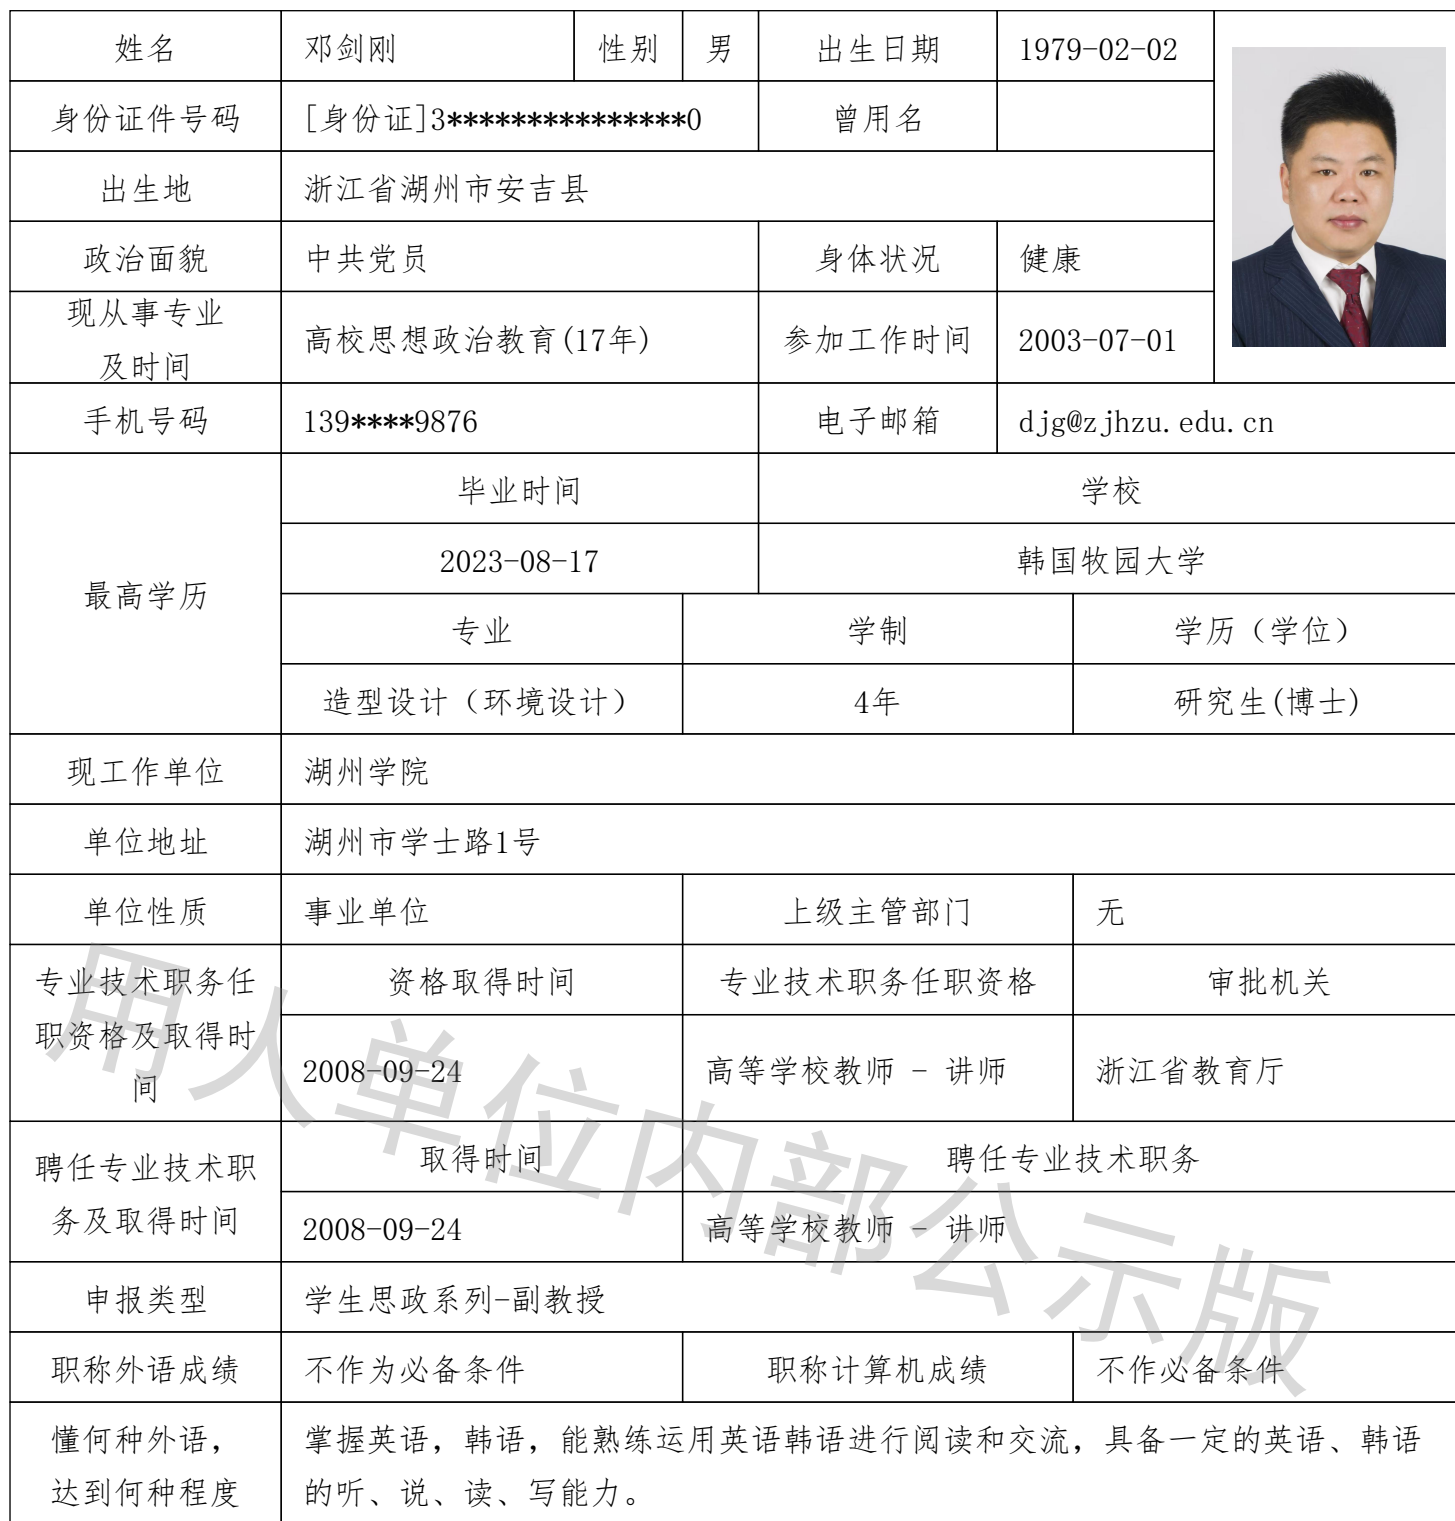 姓名 邓剑刚 性别 男 出生日期 1979-02-02
身份证件号码 [身份证]3***************0 曾用名
出生地 浙江省湖州市安吉县
政治面貌 中共党员 身体状况 健康
现从事专业
及时间
高校思想政治教育(17年) 参加工作时间 2003-07-01
手机号码 139****9876 电子邮箱 djg@zjhzu.edu.cn
最高学历
毕业时间 学校
2023-08-17 韩国牧园大学
专业 学制 学历（学位）
造型设计（环境设计） 4年 研究生(博士)
现工作单位 湖州学院
单位地址 湖州市学士路1号
单位性质 事业单位 上级主管部门 无
专业技术职务任
职资格及取得时
间
资格取得时间 专业技术职务任职资格 审批机关
2008-09-24 高等学校教师 - 讲师 浙江省教育厅
聘任专业技术职
务及取得时间
取得时间 聘任专业技术职务
2008-09-24 高等学校教师 - 讲师
申报类型 学生思政系列-副教授
职称外语成绩 不作为必备条件 职称计算机成绩 不作必备条件
懂何种外语，
达到何种程度
掌握英语，韩语，能熟练运用英语韩语进行阅读和交流，具备一定的英语、韩语
的听、说、读、写能力。
用人单位内部公示版